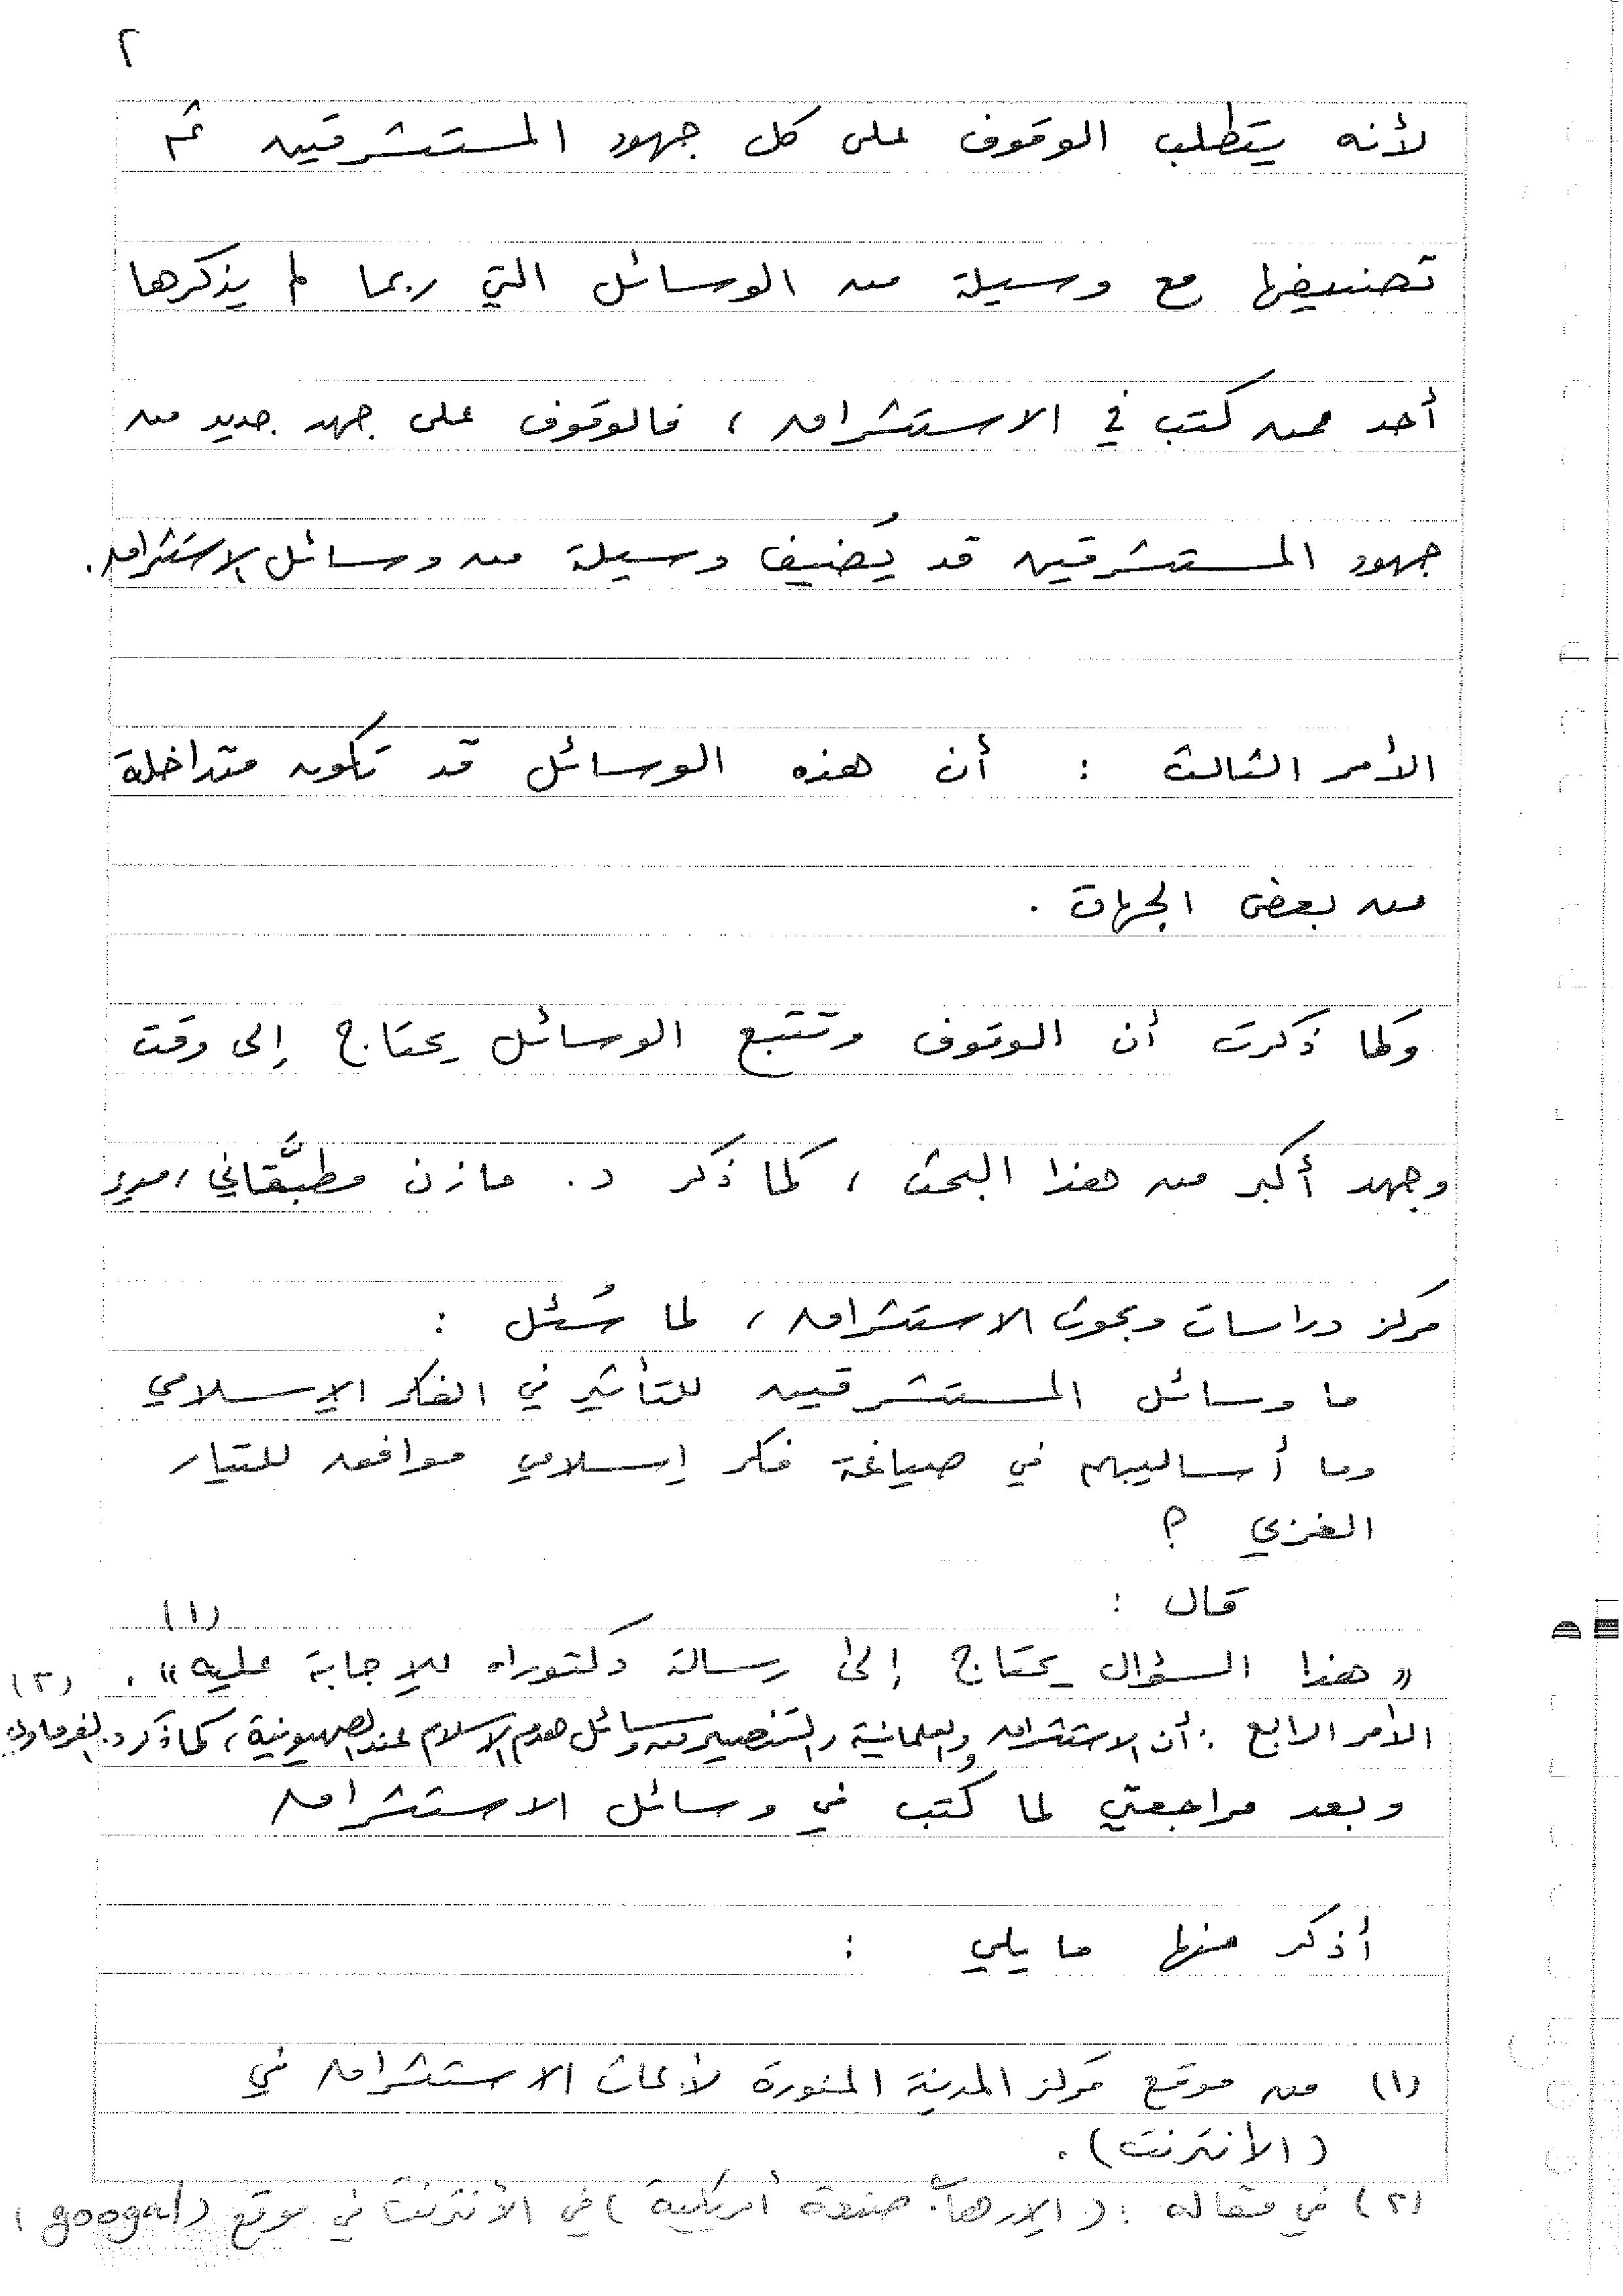 ٢
لأنه يتطلب الوقوف على كل جهود المستشرقين ثم
تصنيفها مع وسيلة من الوسائل التي ربما لم يذكرها
أحد ممن كتب في الاستشراق ، فالوقوف على جهد جديد من
جهود المستشرقين قد يُضيف وسيلة من وسائل الاستشراق .
الأمر الثالث : أن هذه الوسائل قد تكون متداخلة
من بعض الجهات .
وكما ذكرت أن الوقوف وتتبع الوسائل يحتاج إلى وقت
وجهد أكبر من هذا البحث ، كما ذكر د. مازن مطبَّقاني ، مدير
مركز دراسات وبحوث الاستشراق ، لما سُئل :
ما وسائل المستشرقين للتأثير في الفكر الإسلامي
وما أساليبهم في صياغة فكر إسلامي موافق للتيار
الغربي ؟
قال :
« هذا السؤال يحتاج إلى رسالة دكتوراه للإجابة عليه » . (١)
الأمر الرابع : أن الاستشراق والعلمانية والتنصير من وسائل هدم الإسلام عند الصهيونية ، كما ذكر د. الفرماوي (٢)
وبعد مراجعتي لما كُتب في وسائل الاستشراق
أذكر منها ما يلي :
(١) من موقع مركز المدينة المنورة لأبحاث الاستشراق في
(الأنترنت) .
(٢) في مقاله : (الإرهاب صنعة أمريكية) في الأنترنت في موقع (googal)